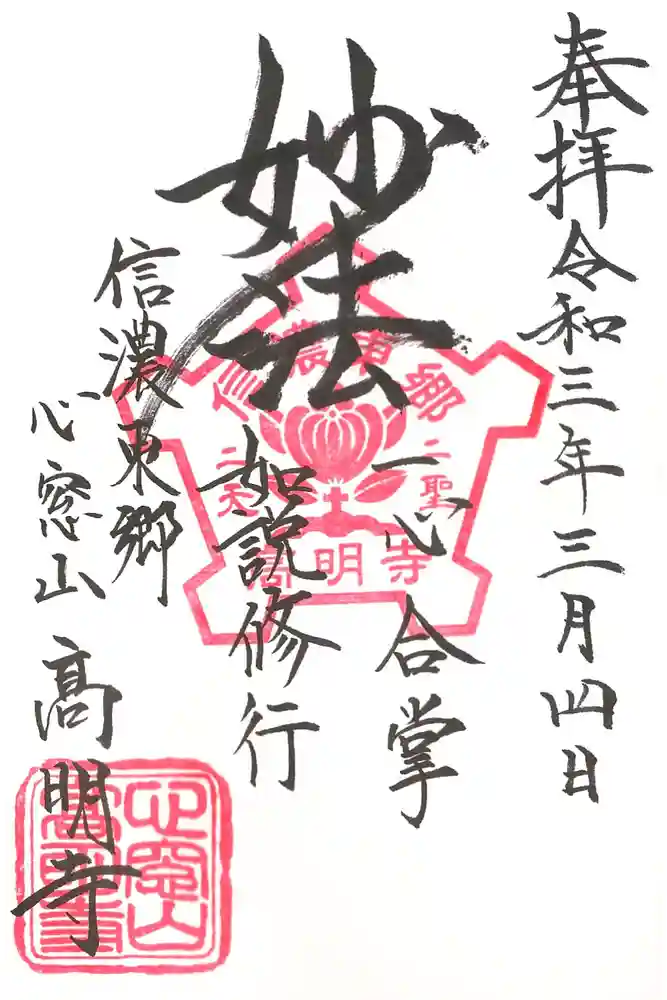 奉拝令和三年三月四日
妙法
一心合掌
如説修行
信濃東郷
心窓山
高明寺
信濃東郷
二聖
二天
高明寺
心窓山
高明寺